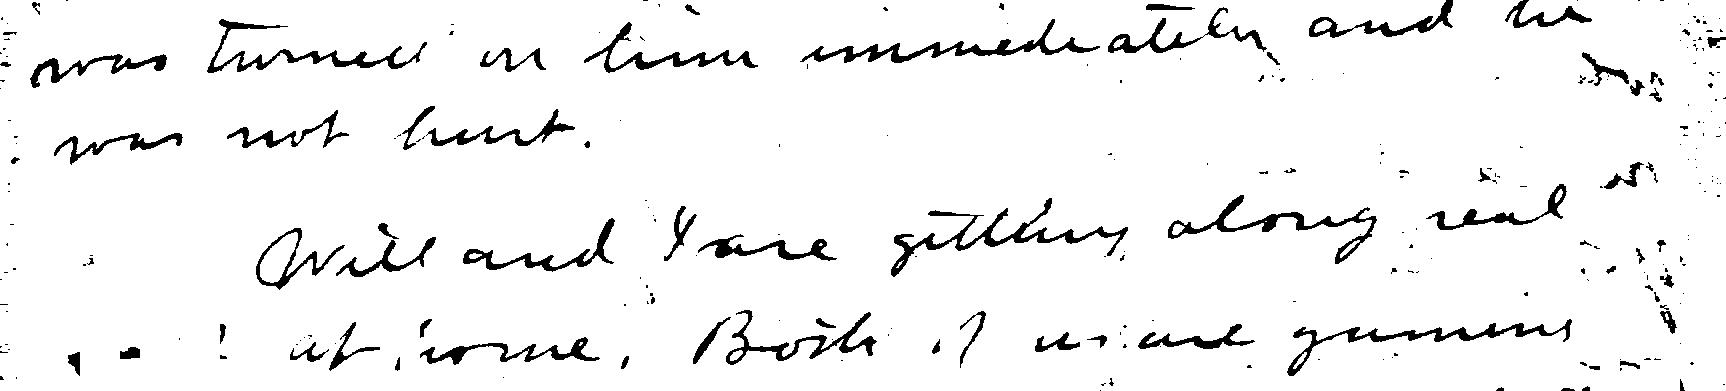 was turned on him immediately and he
was not hurt.
Will and I are getting along real
at home. Both of us are